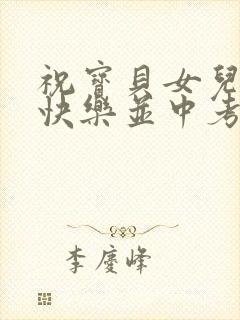 祝寶貝女兒
快樂並中考
李慶峰